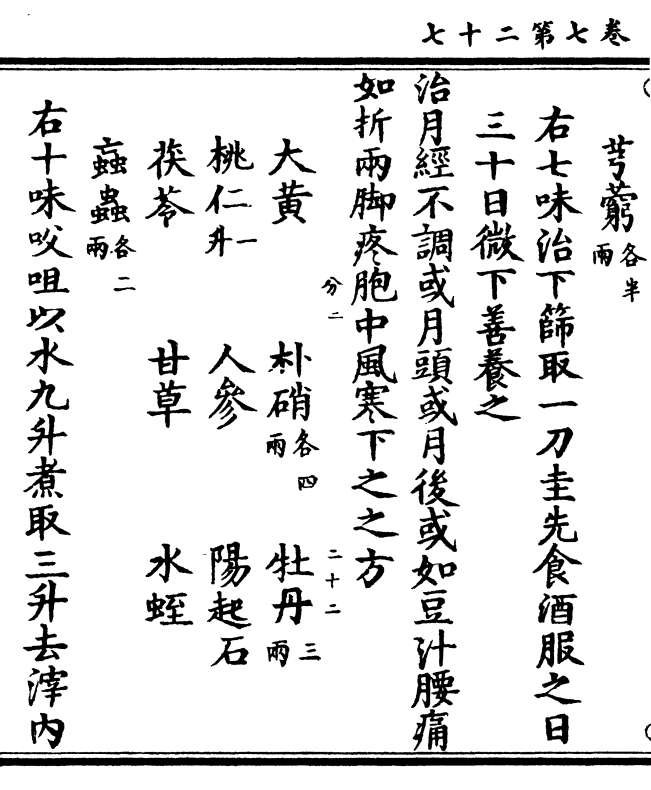 卷七第二十七
芎藭各半兩
右七味治下篩取一刀圭先食酒服之日
三十日微下善養之
治月經不調或月頭或月後或如豆汁腰痛
如折兩脚疼胞中風寒下之之方
分二
二十二
大黃 朴硝各四兩 牡丹三兩
桃仁一升 人參 陽起石
茯苓 甘草 水蛭
蝱蟲各二兩
右十味㕮咀以水九升煮取三升去滓內